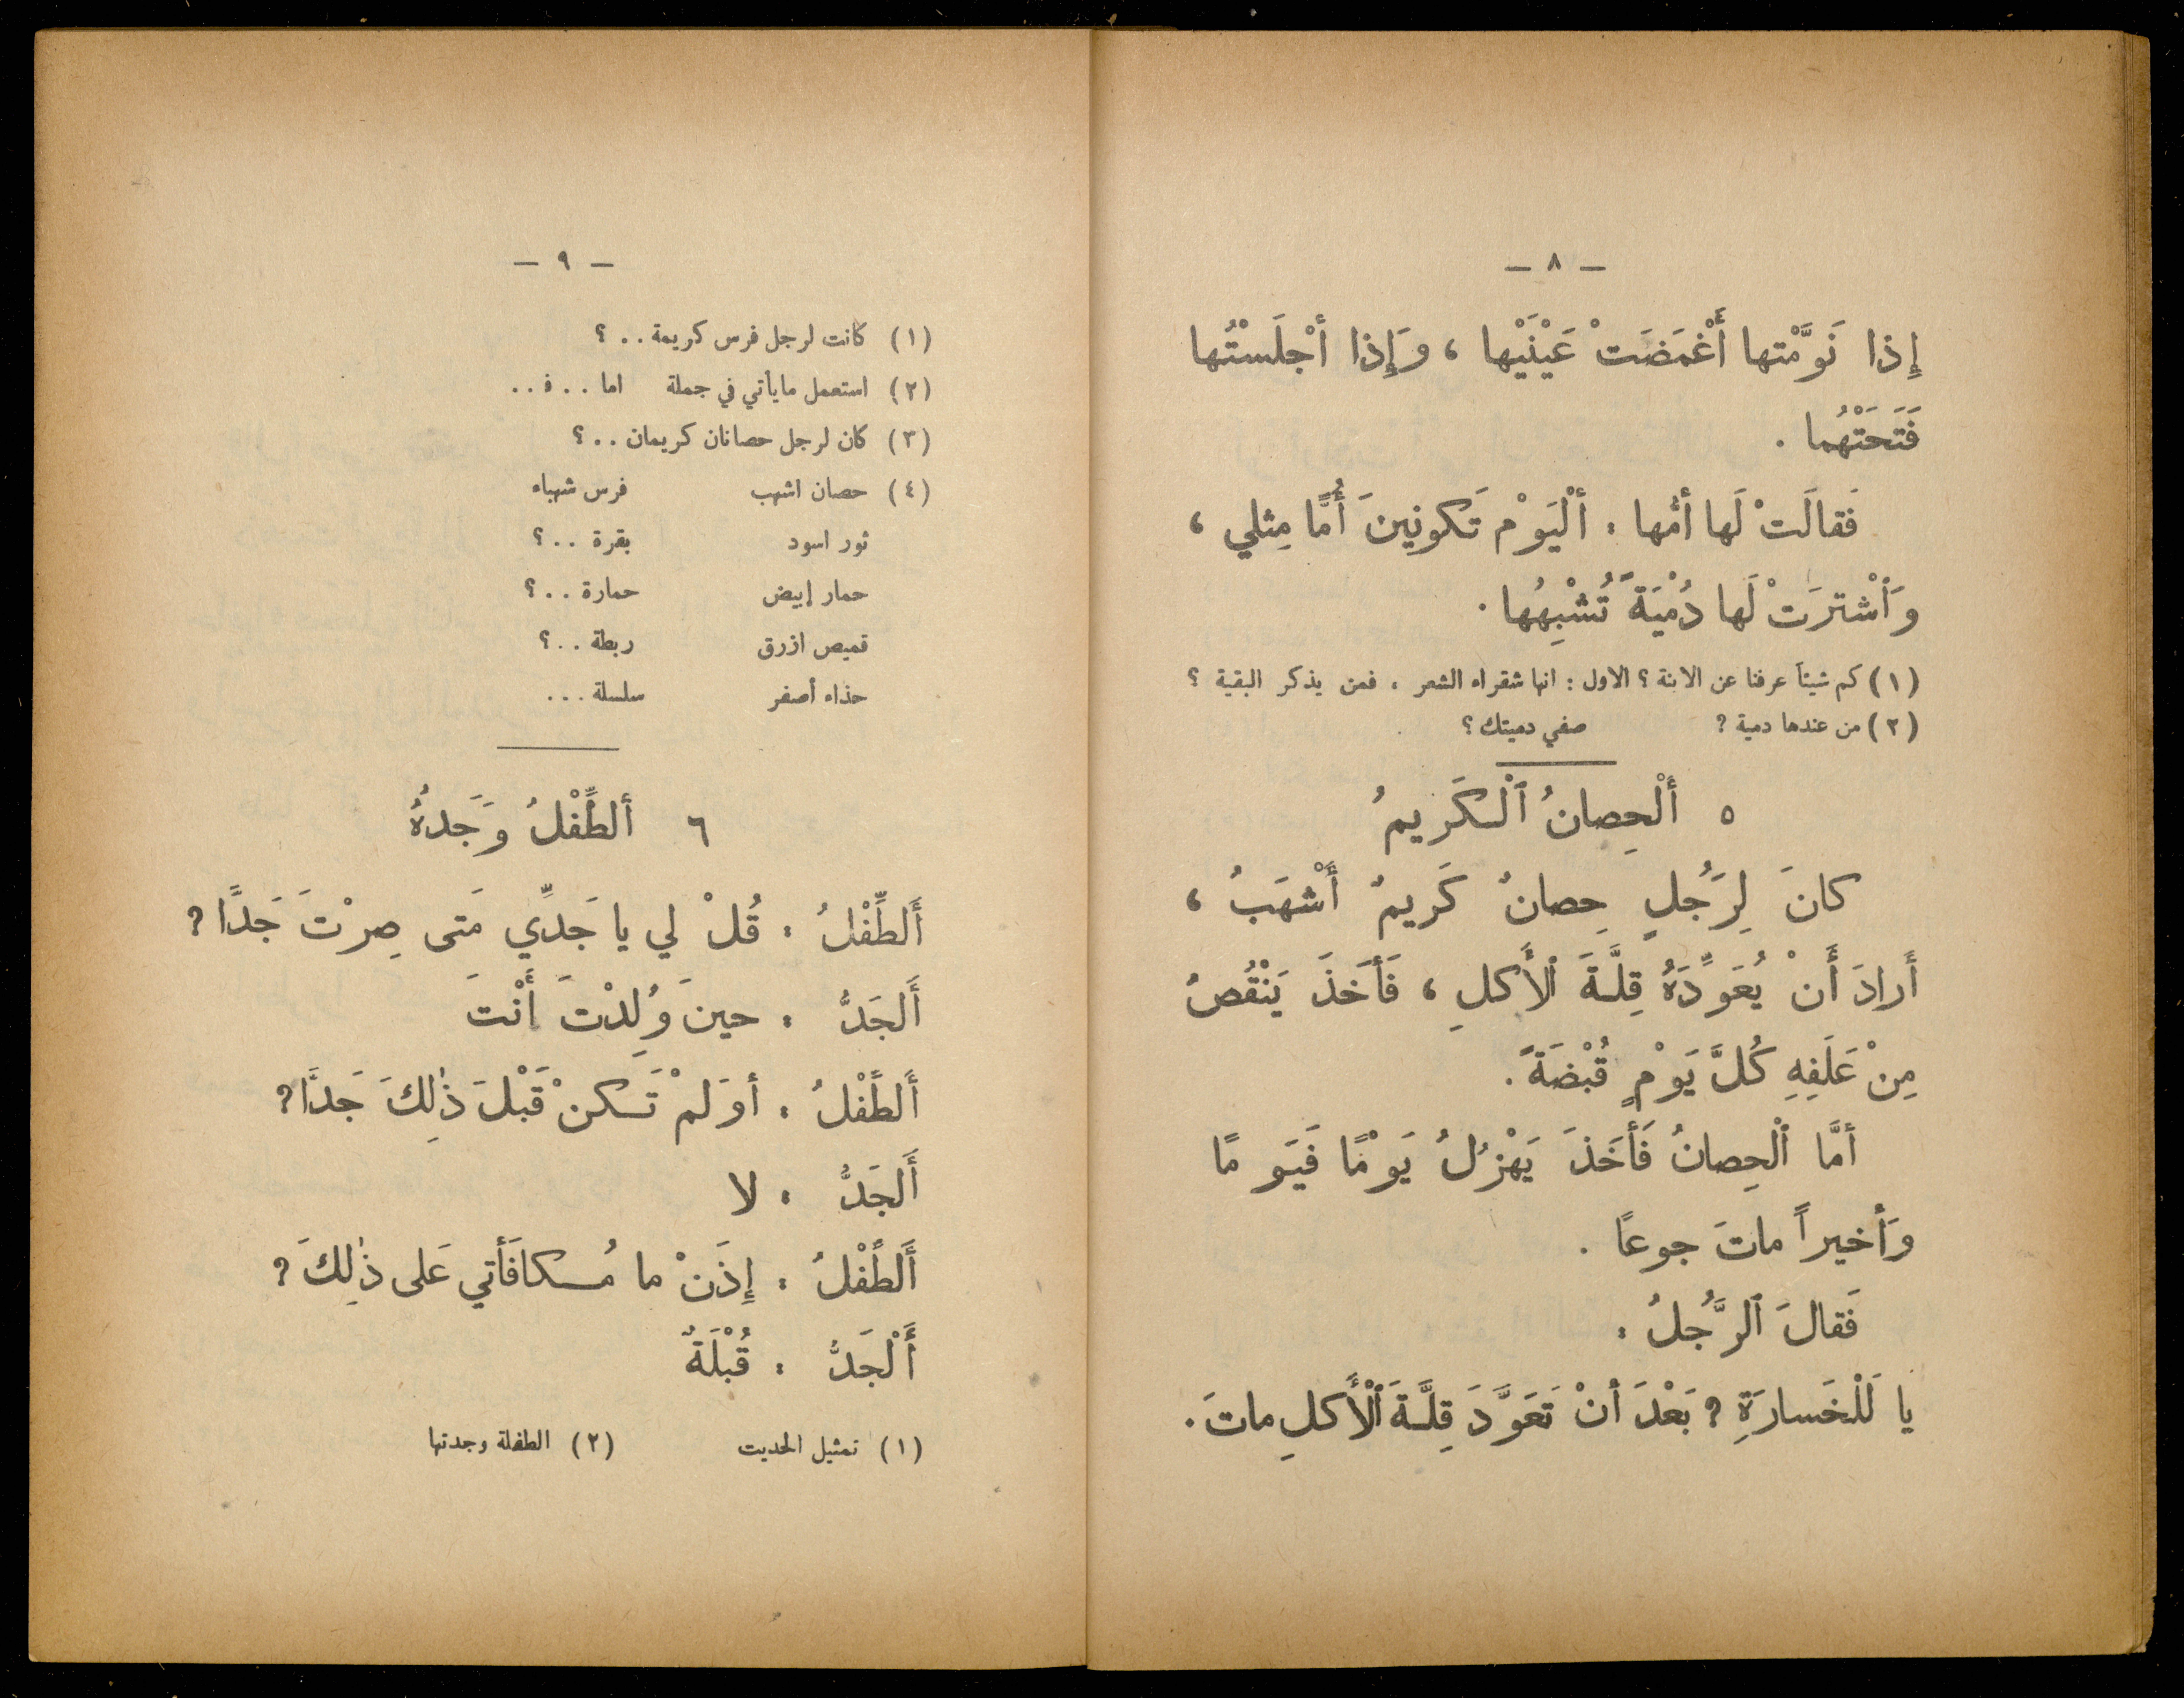 — ٨ —
إِذا نَوَّمْتها أَغْمَضَتْ عَيْنَيْها ، وَإِذا أجْلَسْتُها
فَتَحَتْهُما .
فَقالَتْ لَها أمُّها : ألْيَوْم تَكونِينَ أُمًّا مِثلي ،
وَٱشْترَتْ لَها دُمْيَةً تُشْبِهُها .
(١) كم شيئاً عرفنا عن الابنة ؟ الاول : انها شقراء الشعر . فمن يذكر البقية ؟
(٢) من عندها دمية ؟ صفي دميتك ؟
٥ أَلْحِصانُ ٱلْكَريمُ
كانَ لِرَجُلٍ حِصانٌ كَريمٌ أَشْهَبُ ،
أَرادَ أَنْ يُعَوِّدَهُ قِلَّةَ ٱلأَكلِ ، فَأَخَذَ يَنْقُصُ
مِنْ عَلَفِهِ كُلَّ يَوْمٍ قُبْضَةً .
أمَّا ٱلْحِصانُ فَأَخَذَ يَهْزُلُ يَوْمًا فَيَومًا
وَأخيراً ماتَ جوعًا .
فَقالَ ٱلرَّجُلُ :
يا لَلْخَسارَةِ ؟ بَعْدَ أنْ تَعَوَّدَ قِلَّةَ ٱلْأَكلِ ماتَ .
— ٩ —
(١) كانت لرجل فرس كريمة . . ؟
(٢) استعمل مايأتي في جملة اما . . فـ . .
(٣) كان لرجل حصانان كريمان . . ؟
(٤) حصان اشهب فرس شهباء
ثور اسود بقرة . . ؟
حمار إبيض حمارة . . ؟
قميص ازرق ربطة . . ؟
حذاء أصفر سلسلة . . .
٦ ألطِّفْلُ وَجَدهُُ
أَلطِّفْلُ : قُلْ لي يا جَدِّي مَتى صِرْتَ جَدًّا ؟
أَلجَدُّ : حينَ وُلِدْتَ أَنْتَ
أَلطِّفْلُ : أوَلَمْ تَكنْ قَبْلَ ذٰلِكَ جَدًّا ؟
أَلجَدُّ : لا
أَلطِّفْلُ : إِذَنْ ما مُكافَأتي عَلى ذٰلِكَ ؟
أَلْجَدُّ : قُبْلَةٌ
(١) تمثيل الحديث (٢) الطفلة وجدتها